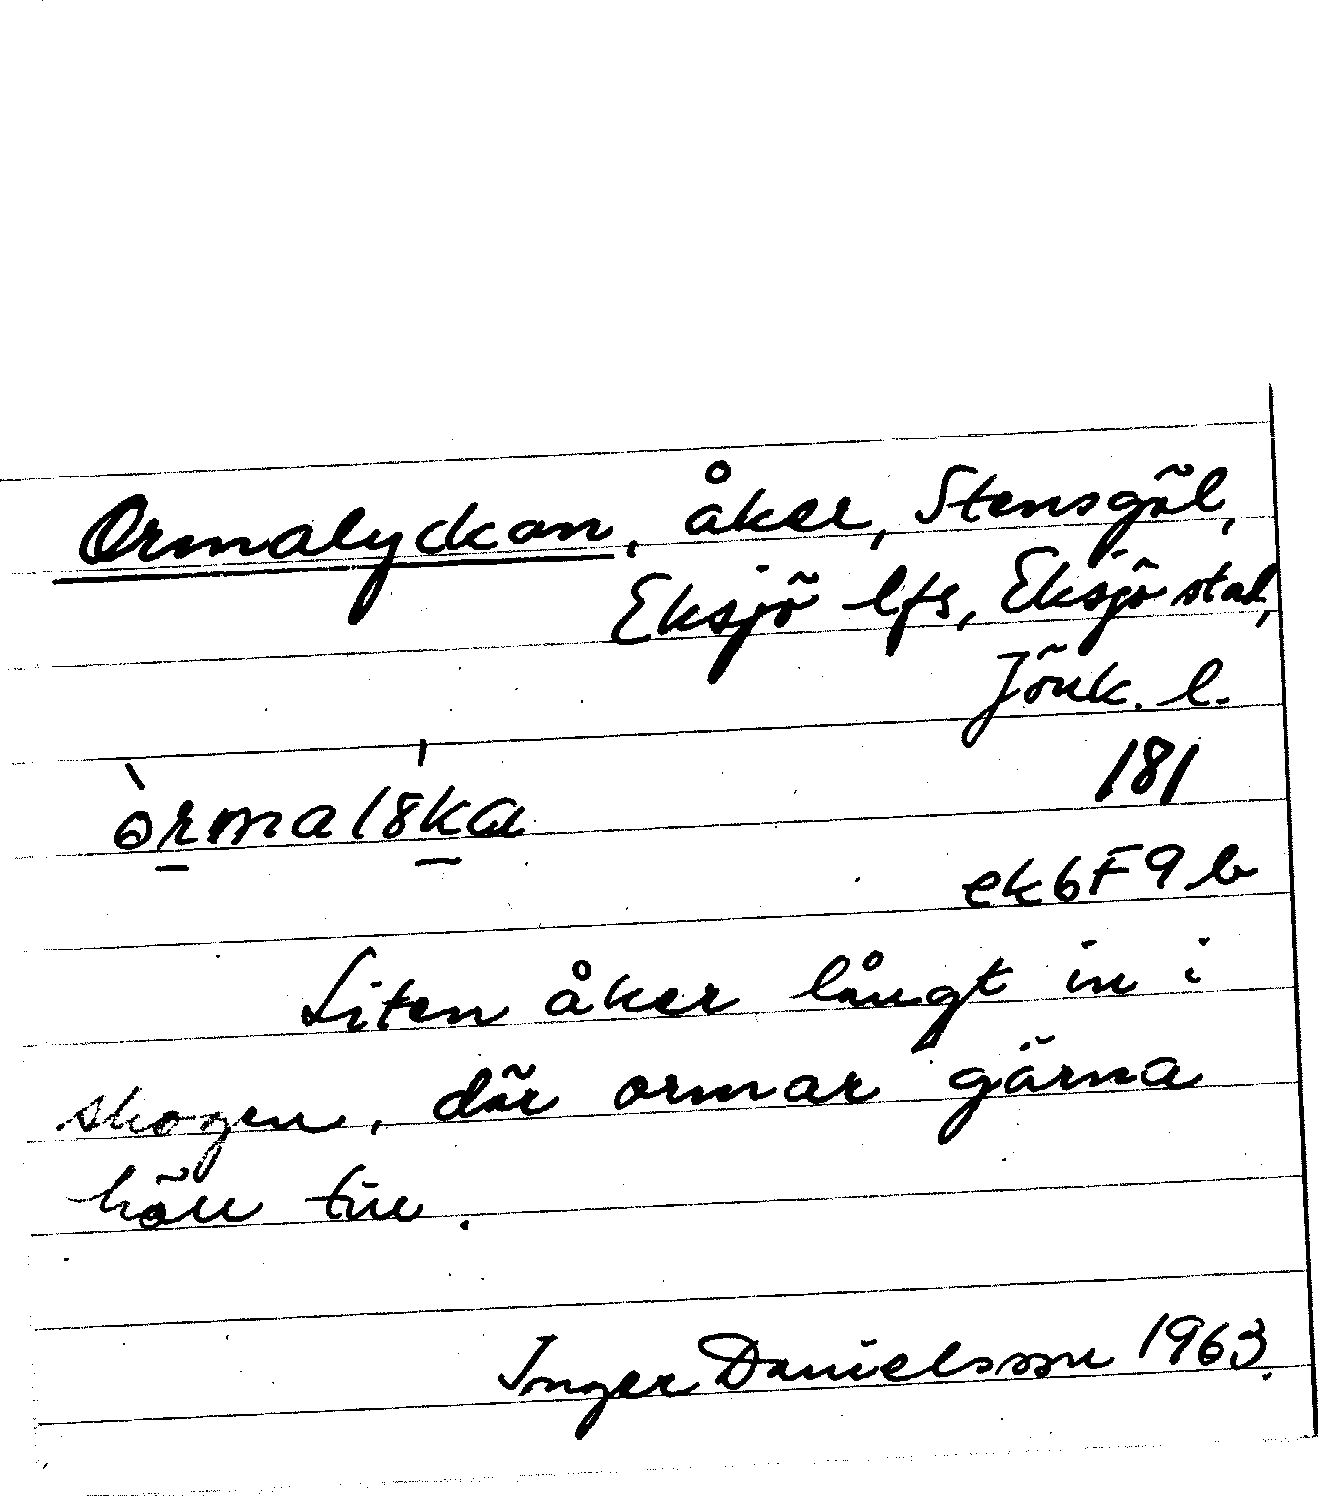 Ormalyckan, åker, Stensgöl,
Eksjö lfs, Eksjö stad,
Jönk. l.
181
ek6F9b
Liten åker långt in i
skogen, där ormar gärna
höll till.
Inger Danielsson 1963.